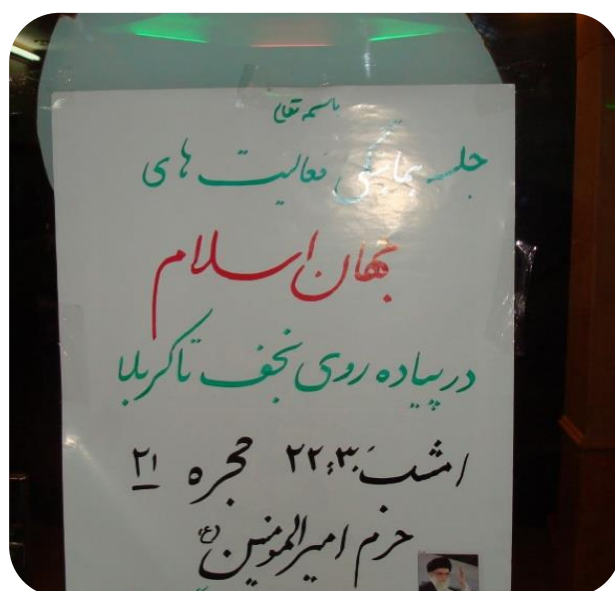 باسمه تعالی
جلسه هماهنگی فعالیت های
جهان اسلام
در پیاده روی نجف تا کربلا
امشب ۲۲:۳۰ حجره ۲۱
حرم امیرالمومنین (ع)